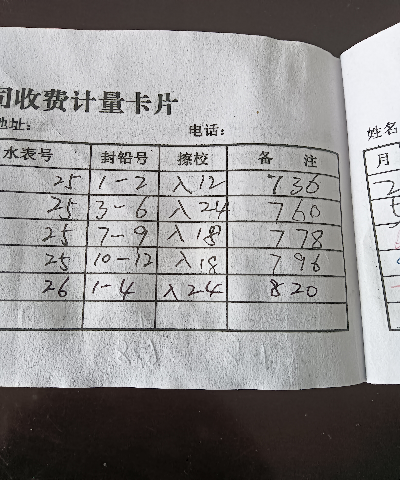 司收费计量卡片
地址: 电话:
水表号 封铅号 擦校 备注
25 1-2 入12 736
25 3-6 入24 760
25 7-9 入18 778
25 10-12 入18 796
26 1-4 入24 820
姓名
月